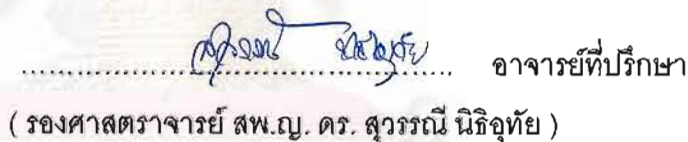 สุวรรณี นิธิอุทัย อาจารย์ที่ปรึกษา
( รองศาสตราจารย์ สพ.ญ. ดร. สุวรรณี นิธิอุทัย )